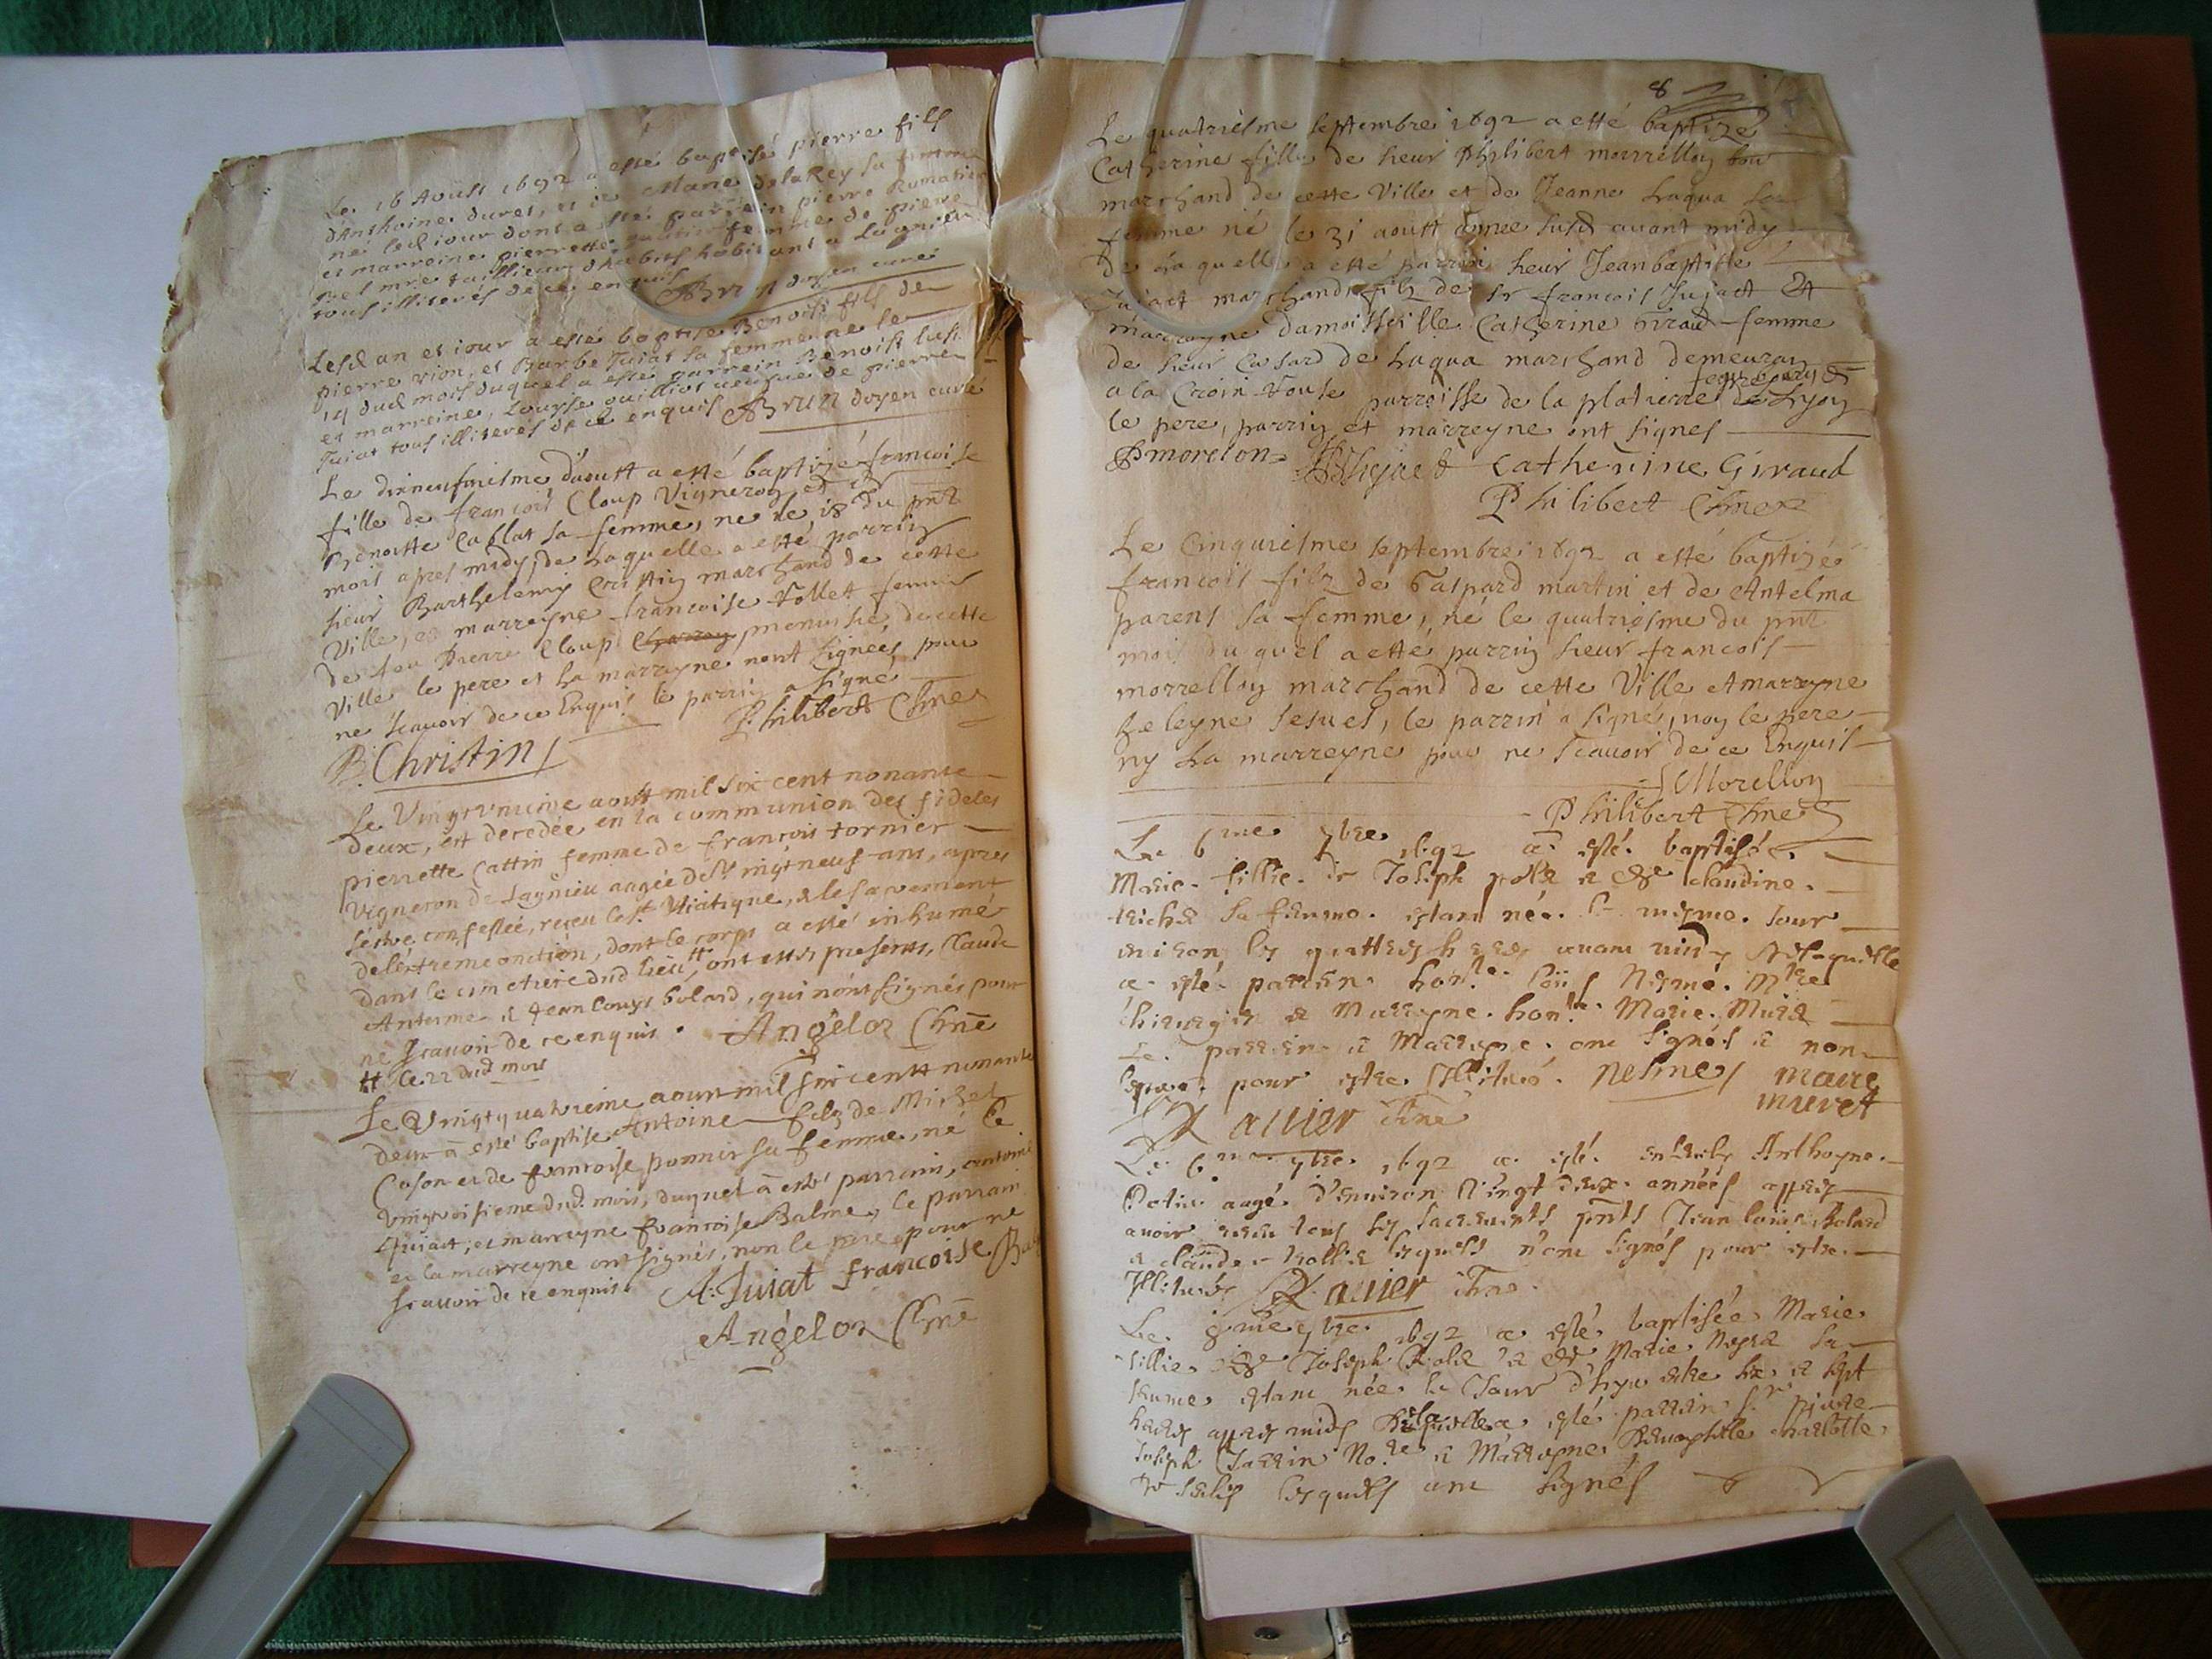 Le 16 Aoust 1692 a esté baptisé pierre fils
d'Anthoine duret, et de Marie delaRey sa femme
né led iour dont a esté parrein pierre Rematier
et marreine pierrette femme de pierre
mre taillieur dhabits habitant a Lagnieu
tous illiterés de ce enquis Brun doyen curé
Lesd an et iour a esté baptisé Benoist fils de
pierre vion, et Barbe Juiat sa femme ne le
14 dud mois duquel a esté parrein Benoist
et marreine, Louyse veufue de pierre
Juiat tous illiterés de ce enquis Brun doyen curé
Le dixneufuiesme d'aoust a esté baptizé francoise
fille de francois Cloup Vigneron et de
Benoitte Cablat sa femme, ne le 18 du pnt
mois apres midy, de Laquelle a esté parrin
sieur Barthelemy Cristin marchand de cette
Ville, et marreyne francoise follet femme
de feu Pierre Cloup menusié, de cette
Ville le pere et la marreyne nont signees pour
ne scauoir de ce Enquis le parrin a signe
Philibert Chne
B. Christin
Le Vingtvnieme aoust mil six cent nonante
deux, est decedée en la communion des fideles
pierrette Cattin femme de francois tornier
Vigneron de Lagnieu aagée de vingtneuf ans, apres
s'estre confessée, receu le st Viatique, & le sacrement
de l'extreme onction, dont le corps a esté inhumé
dans le cimetiere dud lieu tt, ont estés presents, Claude
Anterme et Jean Louys bolard, qui nónt signés pour
ne scauoir de ce enquis. Angelot Chne
tt le 22 dud mois
Le Vingtquatrieme aoust mil six centt nonante
deux à esté baptise Antoine filz de Michel
Coson et de francoise ponnier sa femme, né le
vingtroisieme dud. mois, duquel à esté parrain, antoine
Juiat, et marreyne francoise Balme, le parrain
et la marreyne ont signés, non le pere pour ne
scauoir de ce enquis. A. Juiat francoise Bal
Angelot Chne
8
Le quatriesme septembre 1692 a esté baptizé
Catherine fille de sieur Philibert morrellon
marchand de cette Ville et de Jeanne Laqua sa
femme né le 31 aoustt annee susd auant midy
De Laquelle a esté parrin sieur Jeanbaptiste
Jujact marchand filz de sr francois Jujact Et
marrayne damoisselle Catherine Giraud femme
de sieur de Laqua marchand demeuran
a la Croix rouse parroisse de la platierre de Lyon
le pere, parrin et marreyne ont signes
Pmorelon Catherine Giraud
Philibert Chne
Le Cinquiesme septembre 1692 a esté baptizé
francois filz de Gaspard martin et de Antelma
parent sa femme, né le quatriesme du pnt
mois du quel a esté parrin sieur francois
morrellon marchand de cette Ville et marreyne
heleyne Jesuet, le parrin a signé, non le pere
ny La marreyne pour ne scauoir de ce Enquis
f Morellon
Philibert Chne
Le 6me 7bre 1692 a esté baptisée
Marie fillie de Joseph et de Claudine
sa femme estant née le mesme Jour
enuiron les quattres heures auant midy de laquelle
a esté parrin honle Neymé Mtre
chirurgien et Marreyne honle Marie Muret
Le parrin et Marreyne ont signés et non
pour estre Illitéré. Nesme marie
muret
Rauier Chne
Le 6me 7bre 1692 a esté enseuely Anthoyne
aagé d'enuiron Vingt deux années apprés
auoir receu tous les sacrements pnts Jean louis Bolard
et claude lesquels n'ont signés pour estre
Illiterés Rauier Chne
Le 8me 7bre 1692 a esté baptisée Marie
fillie de Joseph et de Marie sa
femme estant née le Jour d'hyer entre six et sept
heures appres midy De laquelle a esté parrin sr pierre
Joseph Jarrin No.re et Marreyne Charlotte
lesquels ont signés